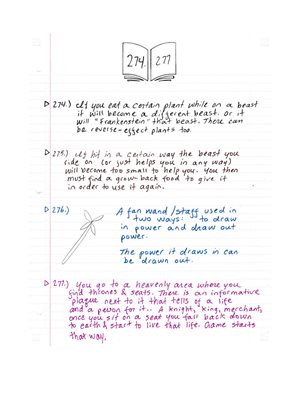 274.
277
274.) If you eat a certain plant while on a beast
it will become a different beast. Or it
will "Frankenstein" that beast. There can
be reverse-effect plants too.
275.) If hit in a certain way the beast you
ride on (or just helps you in any way)
will become too small to help you. You then
must find a grow-back food to give it
in order to use it again.
276.)
A fan wand/staff used in
two ways: to draw
in power and draw out
power.
The power it draws in can
be drawn out.
277.) You go to a heavenly area where you
find thrones & seats. There is an informative
plaque next to it that tells of a life
and a person for it... A knight, king, merchant,
once you sit on a seat you fall back down
to earth & start to live that life. Game starts
that way.